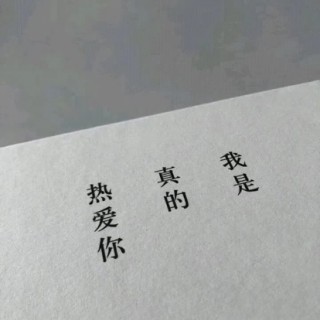 我是
真的
热爱你